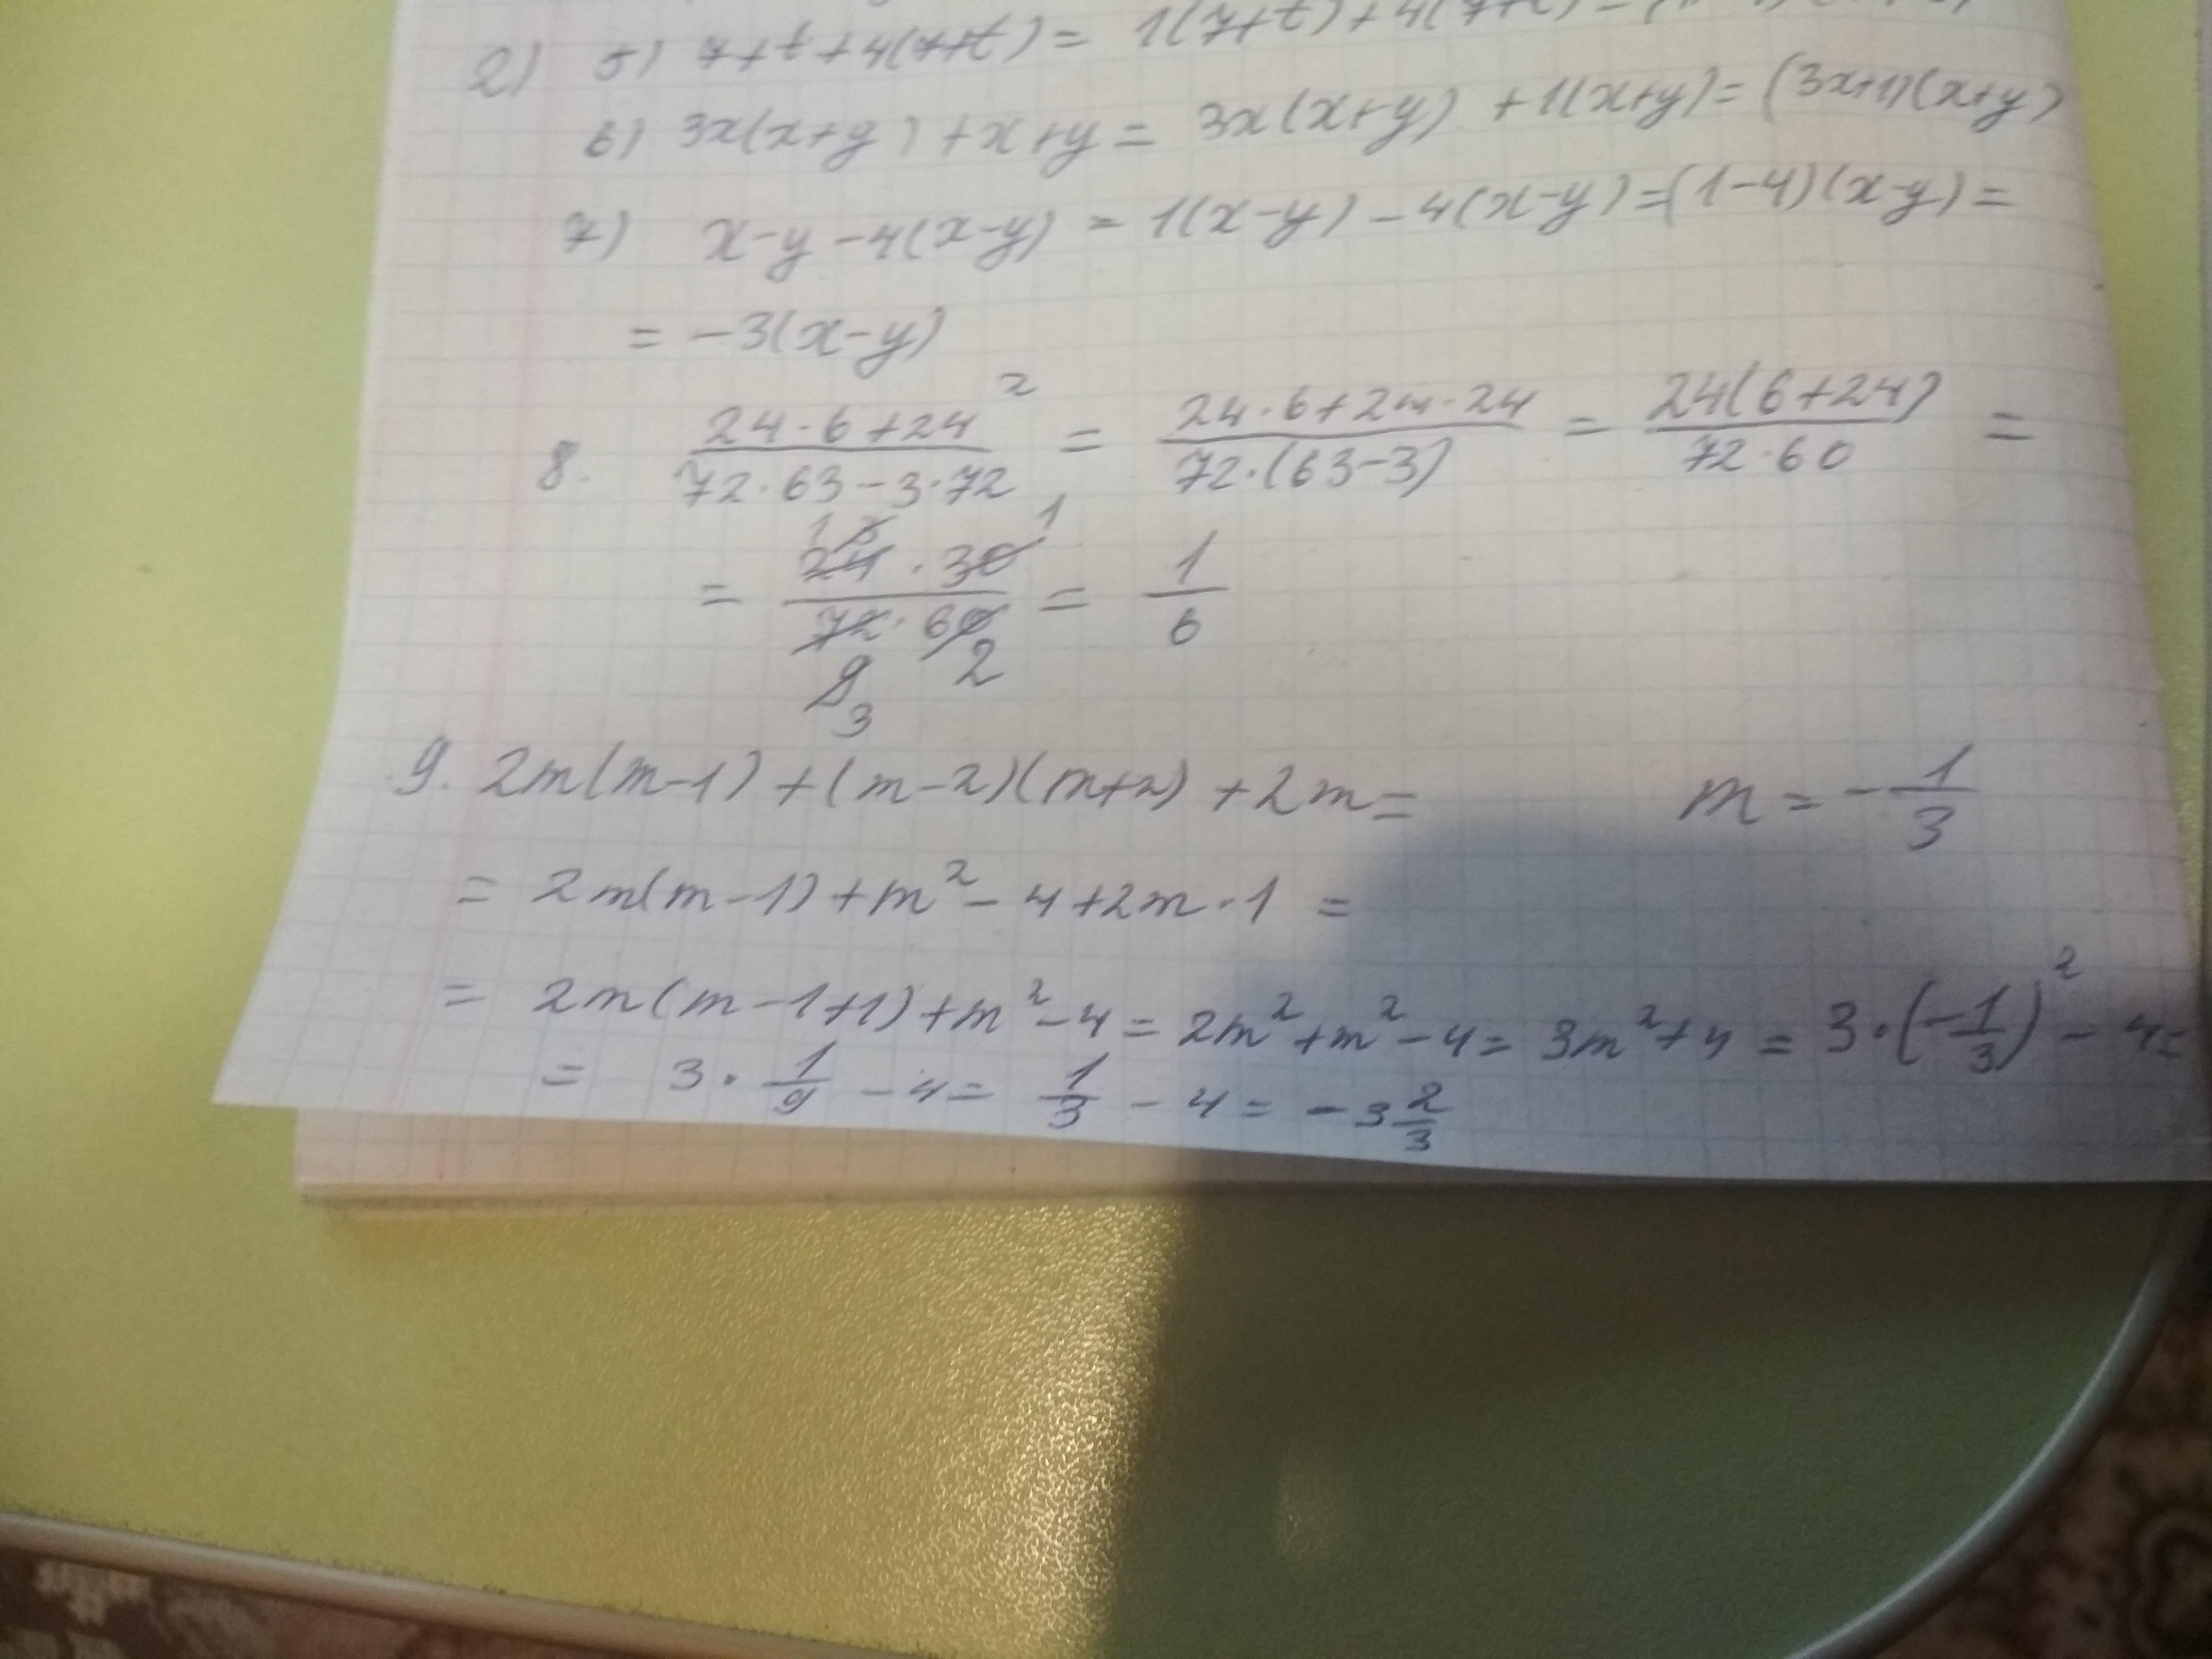 2) 5) 7+t+4(7+t) = 1(7+t)+4(7+t) =
6) 3x(x+y)+x+y = 3x(x+y)+1(x+y)=(3x+1)(x+y)
7) x-y-4(x-y) = 1(x-y)-4(x-y)=(1-4)(x-y)=
= -3(x-y)
8. \frac{24·6+24^2}{72·63-3·72} = \frac{24·6+24·24}{72·(63-3)} = \frac{24(6+24)}{72·60} =
= \frac{24·30}{72·60} = \frac{1}{6}
9. 2m(m-1)+(m-2)(m+2)+2m= m=-\frac{1}{3}
= 2m(m-1)+m^2-4+2m·1 =
= 2m(m-1+1)+m^2-4=2m^2+m^2-4=3m^2+4=3·(-\frac{1}{3})^2-4=
= 3·\frac{1}{9}-4=\frac{1}{3}-4=-3\frac{2}{3}